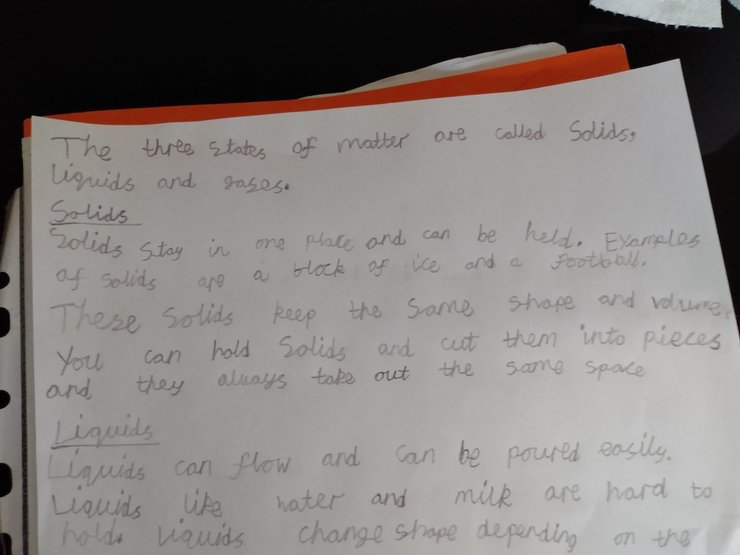 The three states of matter are called Solids,
liquids and gases.
Solids
Solids stay in one place and can be held. Examples
of solids are a block of ice and a football.
These solids keep the same shape and volume.
You can hold Solids and cut them into pieces
and they always take out the same space
Liquids
Liquids can flow and can be poured easily.
Liquids like water and milk are hard to
hold. Liquids change shape depending on the